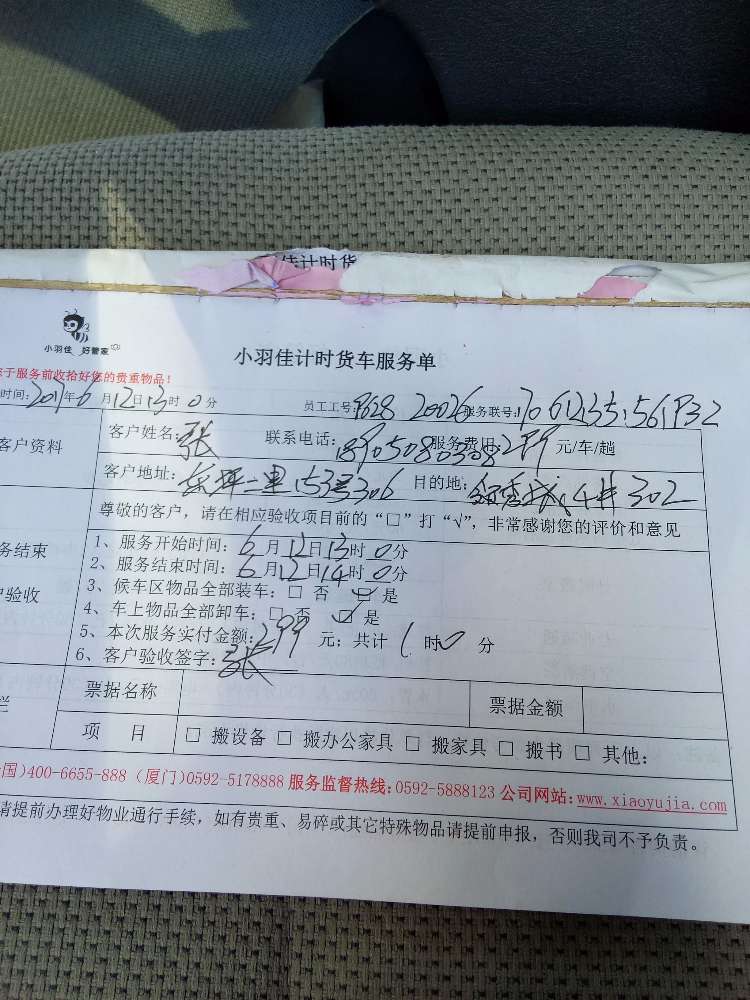 佳计时货
小羽佳 好管家
小羽佳计时货车服务单
于服务前收拾好您的贵重物品！
时间：2017年6月12日13时0分 员工工号： 20026 服务联号：
客户资料
客户姓名：张 联系电话： 服务费用：299 元/车/趟
客户地址： 306 目的地： 302
尊敬的客户，请在相应验收项目前的“□”打“√”，非常感谢您的评价和意见
务结束
验收
1、服务开始时间：6月12日13时0分
2、服务结束时间：6月12日14时0分
3、候车区物品全部装车：□ 否 ☑ 是
4、车上物品全部卸车：□ 否 ☑ 是
5、本次服务实付金额：299 元；共计 1 时 0 分
6、客户验收签字：张
栏
票据名称 票据金额
项 目 □ 搬设备 □ 搬办公家具 □ 搬家具 □ 搬书 □ 其他：
国)400-6655-888 (厦门)0592-5178888 服务监督热线：0592-5888123 公司网站：www.xiaoyujia.com
请提前办理好物业通行手续，如有贵重、易碎或其它特殊物品请提前申报，否则我司不予负责。